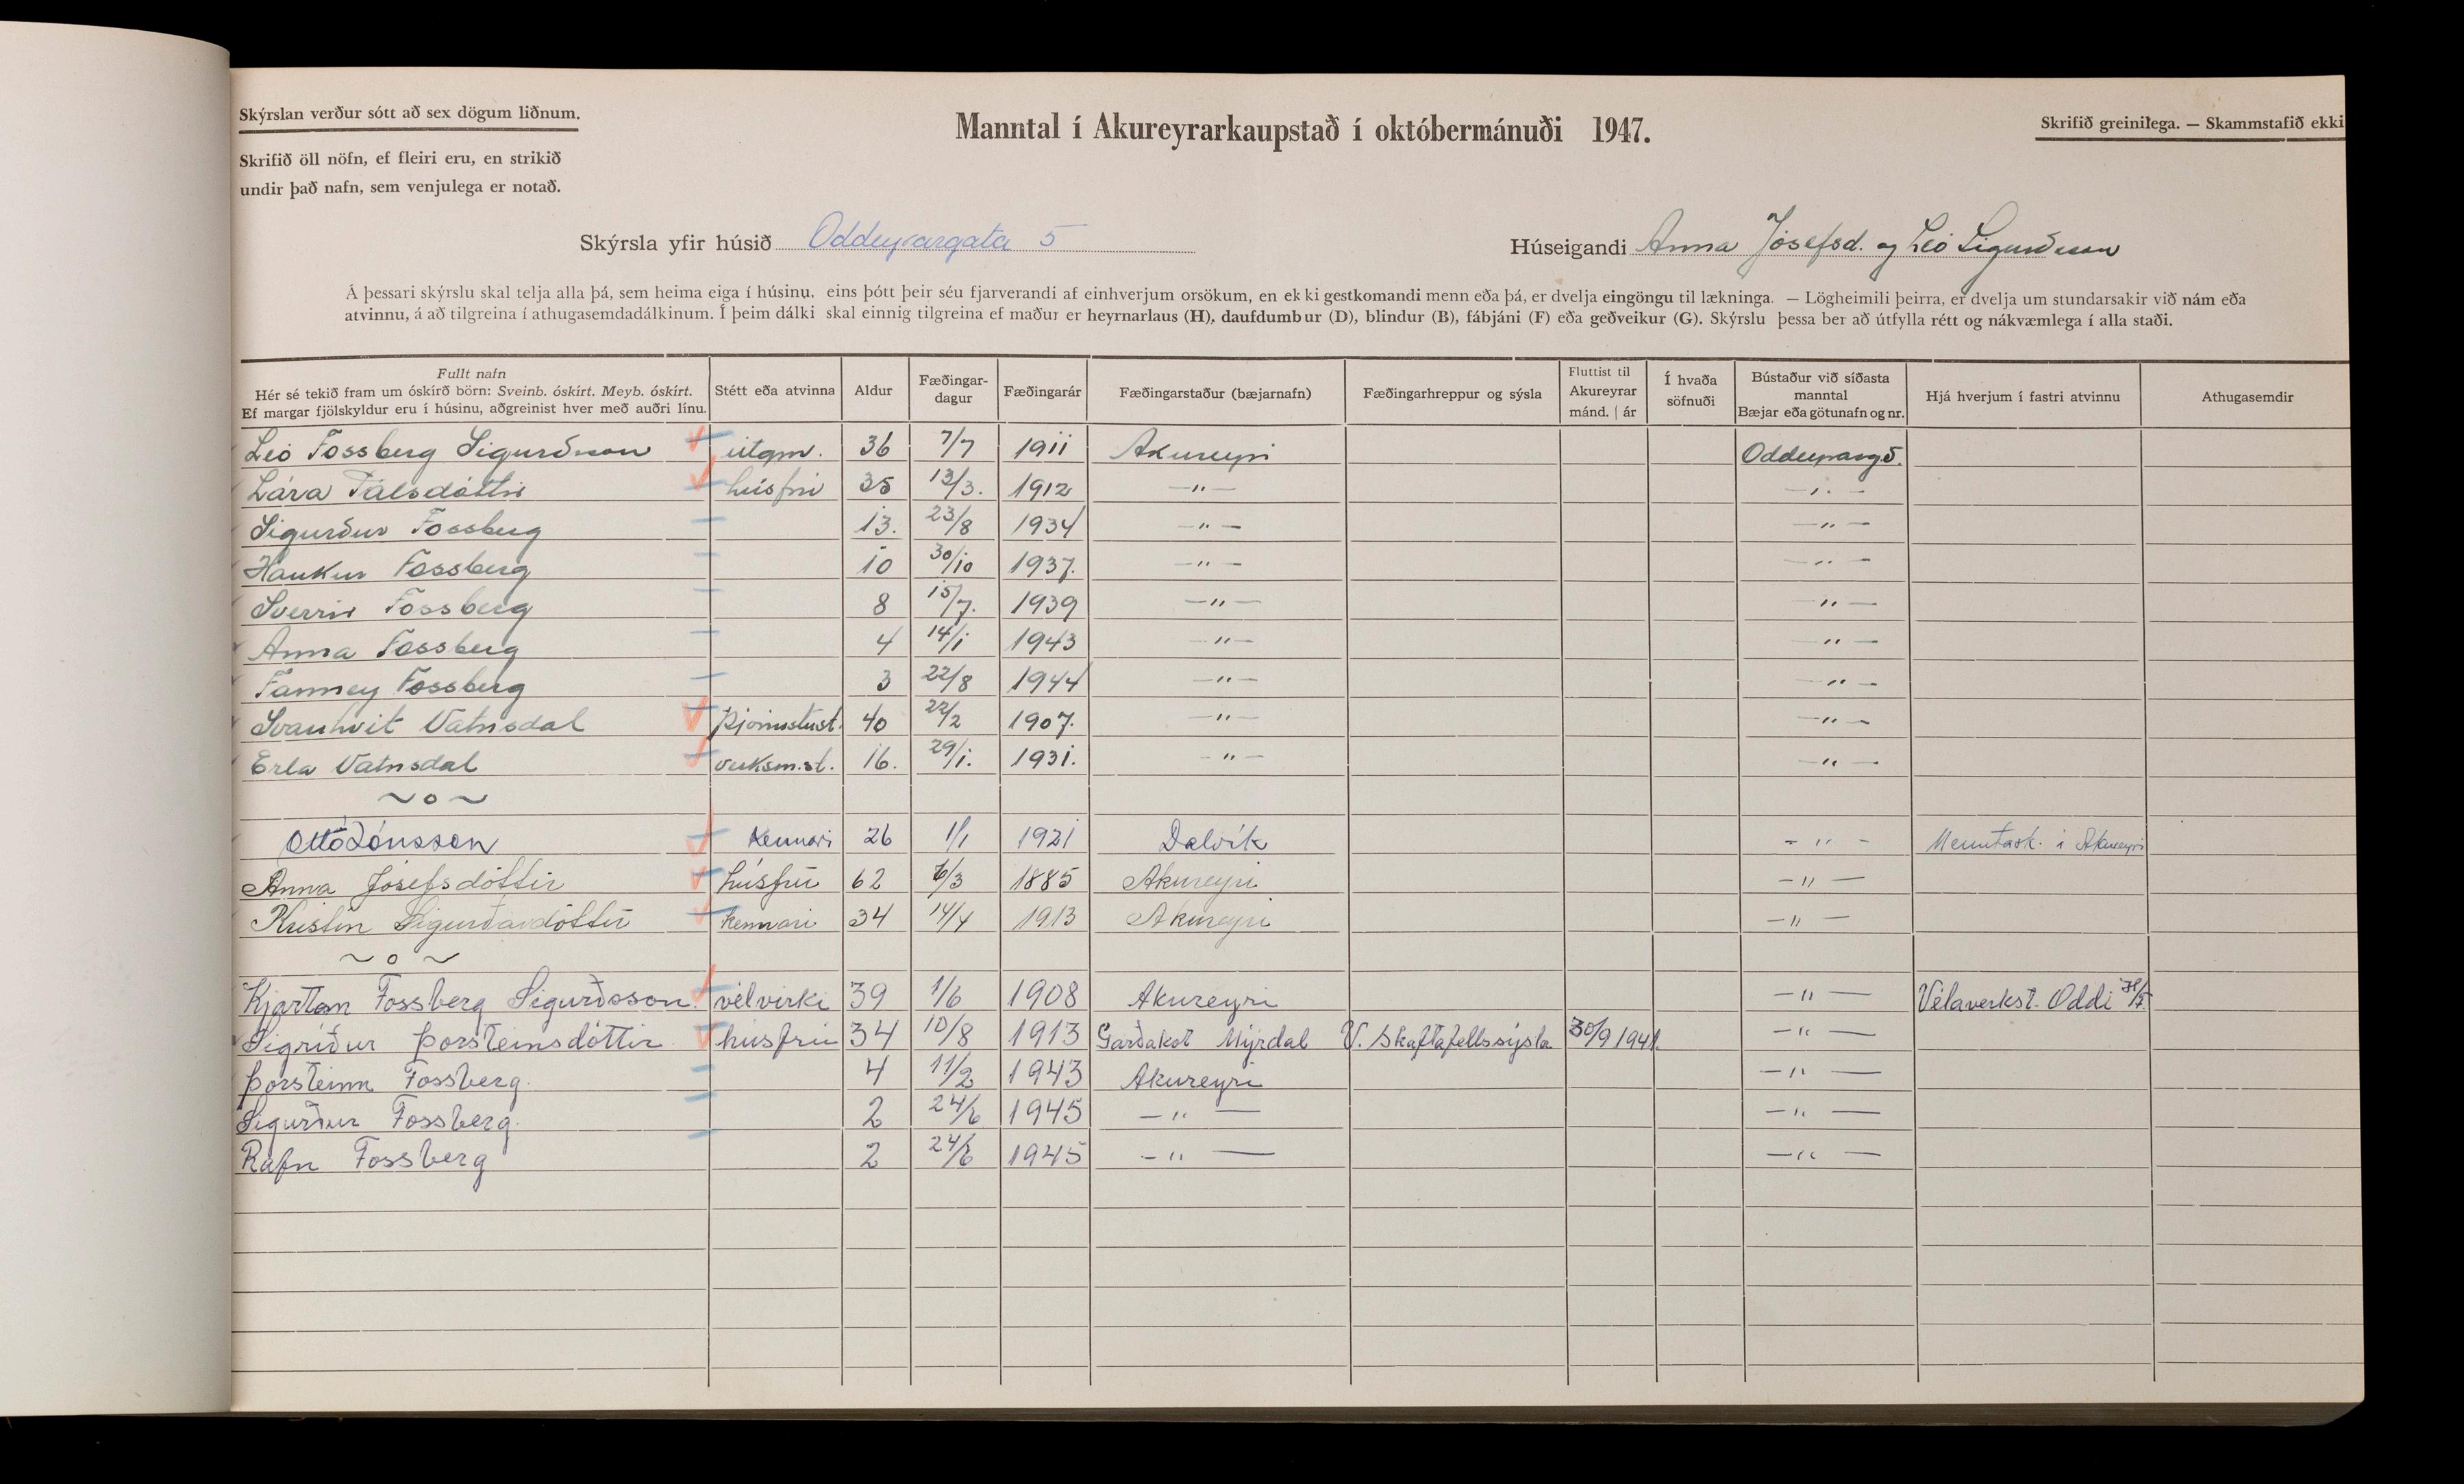 Skýrslan verður sótt að sex dögum liðnum.
Manntal í Akureyrarkaupstað í októbermánuði 1947.
Skrifið greinilega. — Skammstafið ekki
Skrifið öll nöfn, ef fleiri eru, en strikið
undir það nafn, sem venjulega er notað.
Skýrsla yfir húsið Oddeyrargata 5
Húseigandi Anna Jósefsd. og Leó Sigurðsson
Á þessari skýrslu skal telja alla þá, sem heima eiga í húsinu, eins þótt þeir séu fjarverandi af einhverjum orsökum, en ekki gestkomandi menn eða þá, er dvelja eingöngu til lækninga. — Lögheimili þeirra, er dvelja um stundarsakir við nám eða
atvinnu, á að tilgreina í athugasemdadálkinum. Í þeim dálki skal einnig tilgreina ef maður er heyrnarlaus (H), daufdumbur (D), blindur (B), fábjáni (F) eða geðveikur (G). Skýrslu þessa ber að útfylla rétt og nákvæmlega í alla staði.
Fullt nafn
Hér sé tekið fram um óskírð börn: Sveinb. óskírt. Meyb. óskírt.
Ef margar fjölskyldur eru í húsinu, aðgreinist hver með auðri línu.
Stétt eða atvinna
Aldur
Fæðingar-
dagur
Fæðingarár
Fæðingarstaður (bæjarnafn)
Fæðingarhreppur og sýsla
Fluttist til
Akureyrar
mánd. | ár
Í hvaða
söfnuði
Bústaður við síðasta
manntal
Bæjar eða götunafn og nr.
Hjá hverjum í fastri atvinnu
Athugasemdir
Leó Fossberg Sigurðsson útgm. 36 7/7 1911 Akureyri Oddeyrarg 5.
Lára Pálsdóttir húsfrú 35 13/3. 1912 —"— —"—
Sigurður Fossberg 13. 23/8 1934 —"— —"—
Haukur Fossberg 10 30/10 1937. —"— —"—
Sverrir Fossberg 8 15/7. 1939 —"— —"—
Anna Fossberg 4 14/1 1943 —"— —"—
Fanney Fossberg 3 22/8 1944 —"— —"—
Svanhvít Vatnsdal Þjónustust. 40 22/2 1907. —"— —"—
Erla Vatnsdal verksm.st. 16. 29/1. 1931. —"— —"—
~o~
Ottó Jónsson kennari 26 1/1 1921 Dalvík —"— Menntask. í Akureyri
Anna Jósefsdóttir húsfrú 62 6/3 1885 Akureyri —"—
Kristín Sigurðardóttir kennari 34 14/4 1913 Akureyri —"—
~o~
Kjartan Fossberg Sigurðsson. vélvirki 39 1/6 1908 Akureyri —"— Vélaverkst. Oddi H/F
Sigríður Þorsteinsdóttir húsfrú 34 10/8 1913 Garðakot Mýrdal V. Skaftafellssýsla 30/9 1941. —"—
Þorsteinn Fossberg. 4 11/2 1943 Akureyri —"—
Sigurður Fossberg. 2 24/6 1945 —"— —"—
Rafn Fossberg 2 24/6 1945 —"— —"—